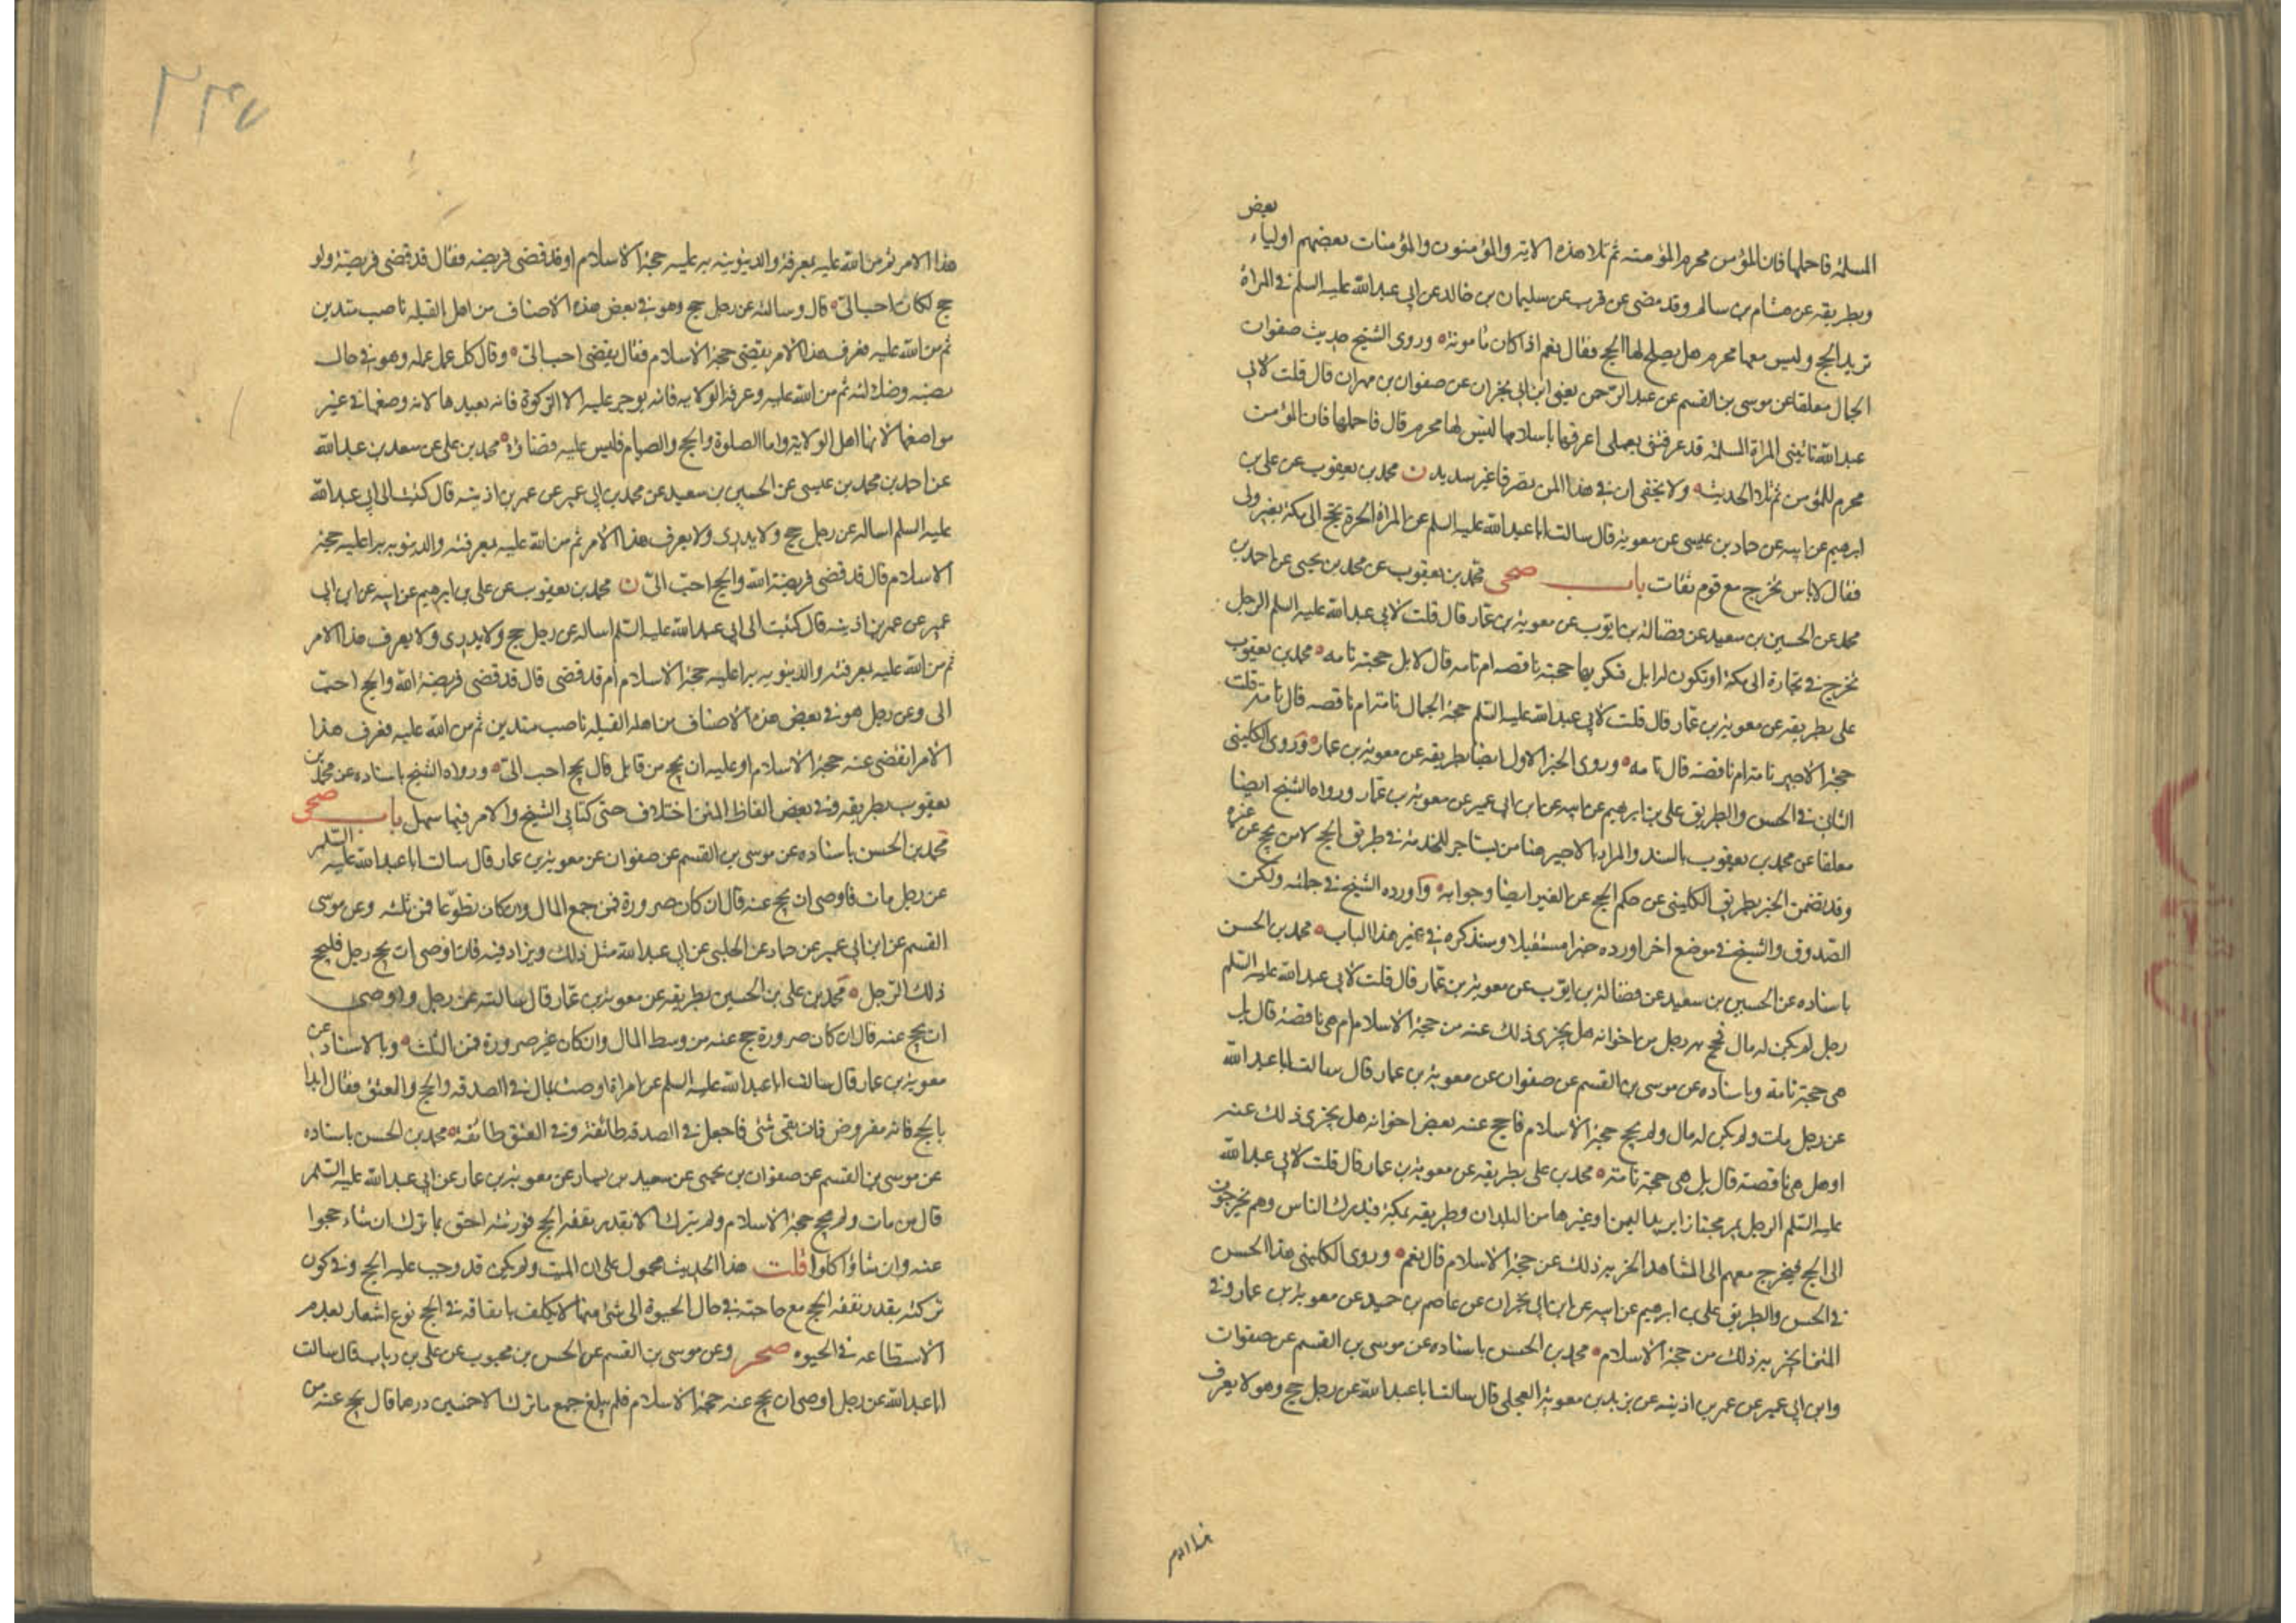 بعض
المسلمة فاحملها فان المؤمن محرم المؤمنة ثم تلا هذه الاية والمؤمنون والمؤمنات بعضهم اولياء
وبطريقه عن هشام بن سالم وقد مضى عن قرب عن سليمان بن خالد عن ابي عبدالله عليه السلم في المراة
تريد الحج وليس معها محرم هل يصلح لها الحج فقال نعم اذا كان مامونة وروى الشيخ حديث صفوان
الجمال معلقا عن موسى بن القسم عن عبد الرحمن يعنى ابن ابي نجران عن صفوان بن مهران قال قلت لابي
عبدالله تاتيني المراة المسلمة قد عرفتني بعملي اعرفها باسلامها ليس لها محرم قال فاحملها فان المؤمن
محرم للمؤمن ثم تلا الحديث ولا يخفى ان في هذا المتن تصرفا غير سديد ن محمد بن يعقوب عن علي بن
ابرهيم عن ابيه عن حماد بن عيسى عن معوية قال سالت ابا عبدالله عليه السلم عن المراة الحرة تحج الى مكة بغير ولي
فقال لا باس تخرج مع قوم ثقات باب صحى محمد بن يعقوب عن محمد بن يحيى عن احمد بن
محمد عن الحسين بن سعيد عن فضالة بن ايوب عن معوية بن عمار قال قلت لابي عبدالله عليه السلم الرجل
يخرج في تجارة الى مكة او تكون له ابل فيكريها حجته ناقصه ام تامه قال لا بل حجته تامه محمد بن يعقوب
على بطريقه عن معوية بن عمار قال قلت لابي عبدالله عليه السلم حجة الجمال تامة ام ناقصه قال تامة قلت
حجة الاجير تامة ام ناقصة قال تامه وروى الخبر الاول ايضا بطريقه عن معوية بن عمار وروى الكليني
الثاني في الحسن والطريق علي بن ابرهيم عن ابيه عن ابن ابي عمير عن معوية بن عمار ورواه الشيخ ايضا
معلقا عن محمد بن يعقوب بالسند والمراد بالاجير هنا من يستاجر للخدمة في طريق الحج لا من يحج عن غيره
وقد تضمن الخبر بطريق الكليني عن حكم الحج عن الغير ايضا وجوابه واورده الشيخ في جملته ولكن
الصدوق والشيخ في موضع اخر اورده خبرا مستقيلا وسنذكره في غير هذا الباب محمد بن الحسن
باسناده عن الحسين بن سعيد عن فضالة بن ايوب عن معوية بن عمار قال قلت لابي عبدالله عليه السلم
رجل لم يكن له مال فحج به رجل من اخوانه هل يجزى ذلك عنه من حجة الاسلام ام هي ناقصة قال بل
هي حجة تامة وباسناده عن موسى بن القسم عن صفوان عن معوية بن عمار قال سالت ابا عبدالله
عن رجل مات ولم يكن له مال ولم يحج حجة الاسلام فاحج عنه بعض اخوانه هل يجزى ذلك عنه
او هل هي ناقصة قال بل هي حجة تامة محمد بن علي بطريقه عن معوية بن عمار قال قلت لابي عبدالله
عليه السلم الرجل يمر مجتازا يريد اليمن او غيرها من البلدان وطريقه بمكة فيدرك الناس وهم يخرجون
الى الحج فيخرج معهم الى المشاهد ايجزيه ذلك عن حجة الاسلام قال نعم وروى الكليني هذا الحسن
في الحسن والطريق علي بن ابرهيم عن ابيه عن ابن ابي نجران عن عاصم بن حميد عن معوية بن عمار وفي
المتن ايجزيه ذلك من حجة الاسلام محمد بن الحسن باسناده عن موسى بن القسم عن صفوان
وابن ابي عمير عن عمر بن اذينه عن بريد بن معوية العجلي قال سالت ابا عبدالله عن رجل حج وهو لا يعرف
هذا الامر
٢٤٧
هذا الامر ثم من الله عليه بمعرفة والدينونية به عليه حجة الاسلام او قد قضى فريضه فقال قد قضى فريضة ولو
حج لكان احب الي قال وسالته عن رجل حج وهو في بعض هذه الاصناف من اهل القبله ناصب متدين
ثم من الله عليه فعرف هذا الامر يقضى حجة الاسلام فقال يقضى احب الي وقال كل عمل عمله وهو في حال
نصبه وضلالته ثم من الله عليه وعرفه الولايه فانه يوجر عليه الا الزكوة فانه يعيدها لانه وضعها في غير
مواضعها لانها اهل الولاية واما الصلوة والحج والصيام فليس عليه قضاؤه محمد بن علي عن سعد بن عبدالله
عن احمد بن محمد بن عيسى عن الحسين بن سعيد عن محمد بن ابي عمير عن عمر بن اذينه قال كتبت الى ابي عبدالله
عليه السلم اساله عن رجل حج ولا يدرى ولا يعرف هذا الامر ثم من الله عليه بمعرفته والدينويه به اعليه حجة
الاسلام قال قد قضى فريضة الله والحج احب الي ن محمد بن يعقوب عن علي بن ابرهيم عن ابيه عن ابن ابي
عمير عن عمر بن اذينه قال كتبت الى ابي عبدالله عليه السلم اساله عن رجل حج ولا يدرى ولا يعرف هذا الامر
ثم من الله عليه بمعرفته والدينويه به اعليه حجة الاسلام ام قد قضى قال قد قضى فريضة الله والحج احب
الى وعن رجل هو في بعض هذه الاصناف من اهل القبله ناصب متدين ثم من الله عليه فعرف هذا
الامر ايقضى عنه حجة الاسلام او عليه ان يحج من قابل قال يحج احب الي ورواه الشيخ باسناده عن محمد بن
يعقوب بطريقه وفي بعض الفاظ المتن اختلاف حتى كتابي الشيخ والامر فيها سهل باب صحى
محمد بن الحسن باسناده عن موسى بن القسم عن صفوان عن معوية بن عمار قال سالت ابا عبدالله عليه السلم
عن رجل مات فاوصى ان يحج عنه قال ان كان صرورة فمن جمع المال وان كان تطوعا فمن ثلثه وعن موسى
القسم عن ابن ابي عمير عن حماد عن الحلبي عن ابي عبدالله مثل ذلك ويزاد فيه فان اوصى ان يحج رجل فليحج
ذلك الرجل محمد بن علي بن الحسين بطريقه عن معوية بن عمار قال سالته عن رجل واوصى
ان يحج عنه قال ان كان صرورة حج عنه من وسط المال وان كان غير صرورة فمن الثلث وبالاسناد عن
معوية بن عمار قال سالت ابا عبدالله عليه السلم عن امراة اوصت بمال في الصدقه والحج والعتق فقال ابدا
بالحج فانه مفروض فان بقى شئ فاجعل في الصدقه طائفة وفي العتق طائفه محمد بن الحسن باسناده
عن موسى بن القسم عن صفوان بن يحيى عن سعيد بن يسار عن معوية بن عمار عن ابي عبدالله عليه السلم
قال من مات ولم يحج حجة الاسلام ولم يترك الا بقدر نفقه الحج فورثته احق بما ترك ان شاء حجوا
عنه وان شاؤا اكلوا قلت هذا الحديث محمول على ان الميت ولم يكن قد وجب عليه الحج وفي كون
تركته بقدر نفقه الحج مع حاجته في حال الحيوة الى شئ منها لا يكلف بانفاقه في الحج نوع اشعار بعدم
الاستطاعه في الحيوه صحر وعن موسى بن القسم عن الحسن بن محبوب عن علي بن رياب قال سالت
ابا عبدالله عن رجل اوصى ان يحج عنه حجة الاسلام فلم يبلغ جمع ما ترك الا خمسين درهما قال يحج عنه من